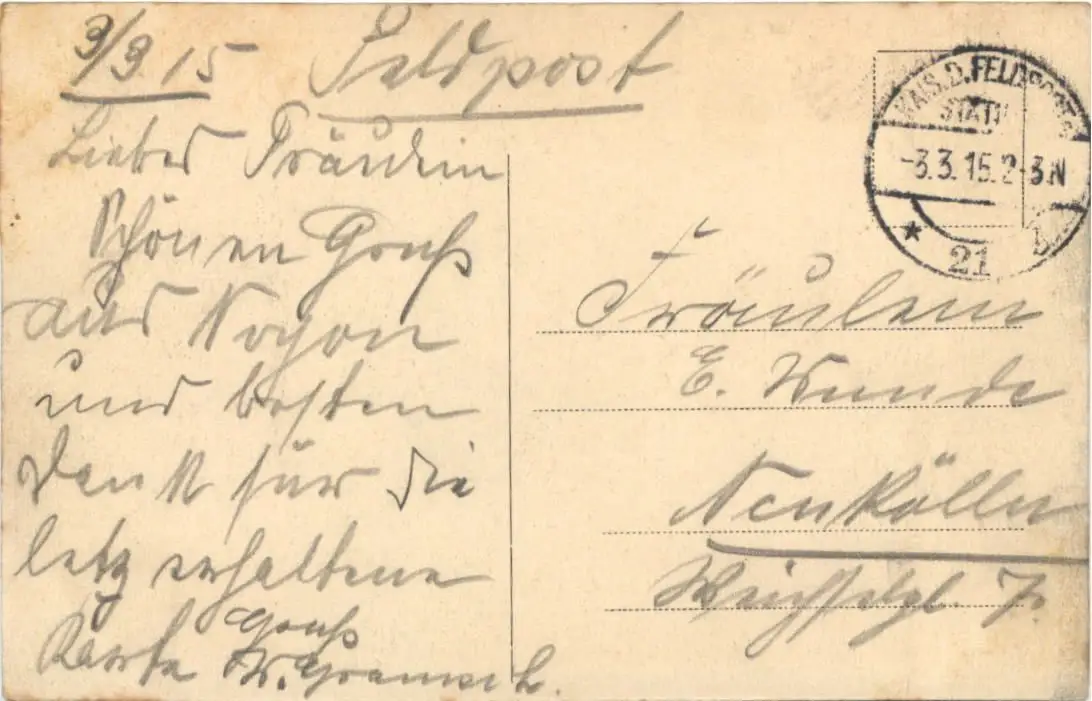 3/3. 15 Feldpost
Liebes Fräulein
Schönen Gruß
aus Noyon
und besten
Dank für die
letz erhaltene
Karte Gruß
KAIS. D. FELDPOST
STATI
-3.3.15.2-3N
* 21 b
Fräulein
E. Wunde
Neukölln
7.